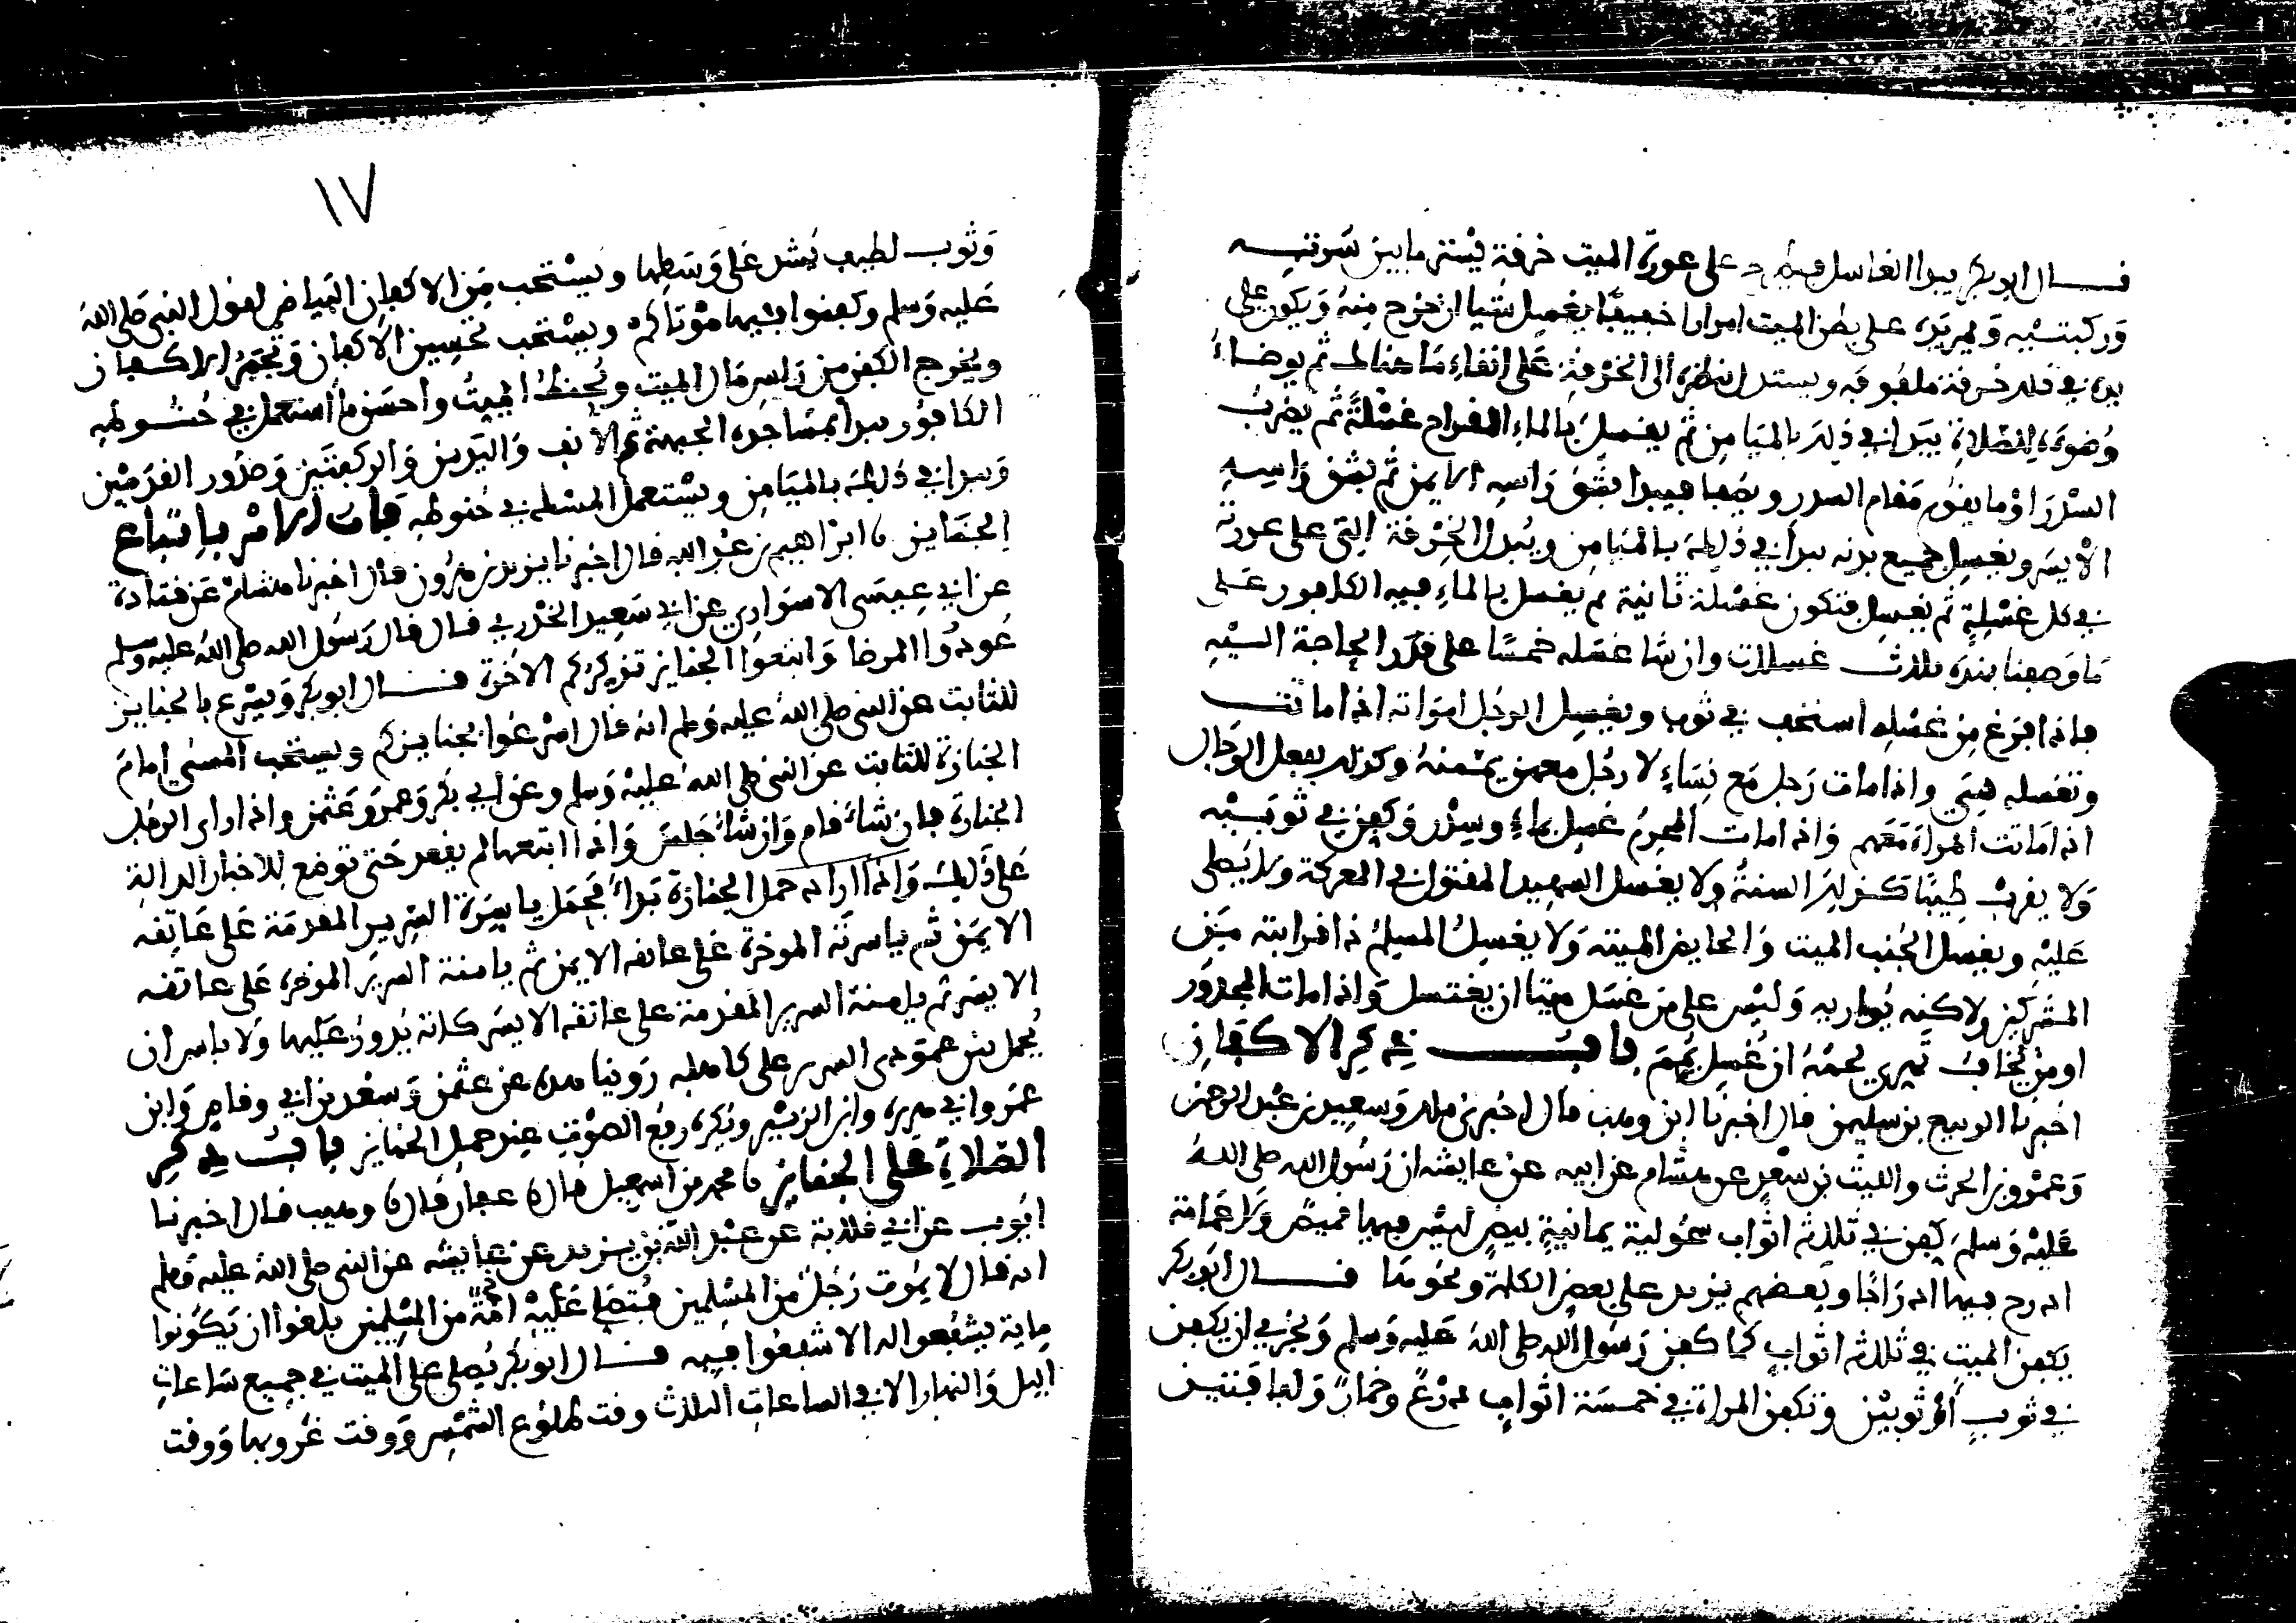 قال ابو بكر يبدا الغاسل فيطرح على عورة الميت خرقة تستر ما بين سرته
وركبتيه ويمر يده على بطن الميت امرارا خفيفا يغسل شيا ان خرج منه ويكون على
يده في ذلك خرقة ملفوفة ويستدل بنظره الى الخرقة على انقاء ما هنالك ثم يوضاء
وضوءه للصلاة يبدا في ذلك بالميامن ثم يغسل بالماء القراح غسلة ثم يضرب
السدر او ما يقوم مقام السدر ويبدا بشق راسه الايمن ثم بشق راسه
الايسر ويغسل جميع بدنه يبدا في ذلك بالميامن ويبدل الخرقة التي على عورته
في كل غسلة ثم يغسل فتكون غسلة ثانية ثم يغسل بالماء فيه الكافور على
ما وصفنا بندة ثلاث غسلات وان شا غسله خمسا على قدر الحاجة اليه
فاذا فرغ من غسله في ثوب ويغسل الرجل امراته اذا ماتت
وتغسله هي واذا مات رجل مع نساء لا رجل معهن يممنه وكذلك يفعل الرجال
اذا ماتت المراة معهم واذا مات المحرم غسل بماء وسدر وكفن في ثوبيه
ولا يقرب طيبا كذلك السنة ولا يغسل الشهيد المقتول في المعركة ولا يصلى
عليه ويغسل الجنب الميت والحايض الميتة ولا يغسل المسلم ذا قرابته من
المشركين ولاكنه يواريه وليس على من غسل ميتا ان يغتسل واذا مات المجدور
او من يخاف تهري لحمه ان غسل يمم باب ذكر الاكفان
اخبرنا الربيع بن سليمن قال اخبرنا ابن وهب قال اخبرني ملك وسعيد بن عبد الرحمن
وعمرو بن الحرث والليث بن سعد عن هشام عن ابيه عن عايشة ان رسول الله صلى الله
عليه وسلم كفن في ثلثة اثواب سحولية يمانية بيض ليس فيها قميص ولا عمامة
ادرج فيها ادراجا وبعضهم يزيد على بعض الكلمة ونحوها قال ابو بكر
يكفن الميت في ثلثة اثواب كما كفن رسول الله صلى الله عليه وسلم ويجزي ان يكفن
في ثوب او ثوبين وتكفن المراة في خمسة اثواب درع وخمار ولفافتين
١٧
وثوب لطيف يشد على وسطها ويستحب من الاكفان البياض لقول النبي صلى الله
عليه وسلم وكفنوا فيها موتاكم ويستحب تحسين الاكفان وتجمر الاكفان
ويخرج الكفن من راس مال الميت ويحنط الميت واحسن ما استعمل في حنوطه
الكافور يبدا بمساجده الجبهة ثم الانف واليدين والركبتين وصدور القدمين
ويبدا في ذلك بالميامن ويستعمل المسك في حنوطه باب الامر باتباع
الجنايز نا ابراهيم بن عبد الله قال اخبرنا يزيد بن هرون قال اخبرنا هشام عن قتادة
عن ابي عيسى الاسواري عن ابي سعيد الخدري قال قال رسول الله صلى الله عليه وسلم
عودوا المرضا واتبعوا الجنايز تذكركم الاخرة قال ابو بكر ويسرع بالجنايز
للثابت عن النبي صلى الله عليه وسلم انه قال اسرعوا بجنايزكم ويستحب المشي امام
الجنازة للثابت عن النبي صلى الله عليه وسلم وعن ابي بكر وعمر وعثمن واذا راى الرجل
الجنازة فان شاء قام وان شاء جلس واذا اتبعها لم يقعد حتى توضع للاخبار الدالة
على ذلك واذا اراد حمل الجنازة بداء بحمل ياسرة السرير المقدمة على عاتقه
الايمن ثم ياسرته الموخرة على عاتقه الايمن ثم يامنة السرير الموخرة على عاتقه
الايسر ثم يامنة السرير المقدمة على عاتقه الايسر كانه يدور عليها ولا باس ان
يحمل بين عمودي السرير على كاهله روينا هذا عن عثمن وسعد بن ابي وقاص وابن
عمر وابي هريرة وابن الزبير ونكره رفع الصوت عند حمل الجنايز باب ذكر
الصلاة على الجنايز نا محمد بن اسمعيل قال نا عفان قال نا وهيب قال اخبرنا
ايوب عن ابي قلابة عن عبد الله بن يزيد عن عايشة عن النبي صلى الله عليه وسلم
انه قال لا يموت رجل من المسلمين فتصلي عليه امة من المسلمين بلغوا ان يكونوا
ماية يشفعوا له الا شفعوا فيه قال ابو بكر يصلى على الميت في جميع ساعات
اليل والنهار الا في الساعات الثلاث وقت طلوع الشمس ووقت غروبها ووقت